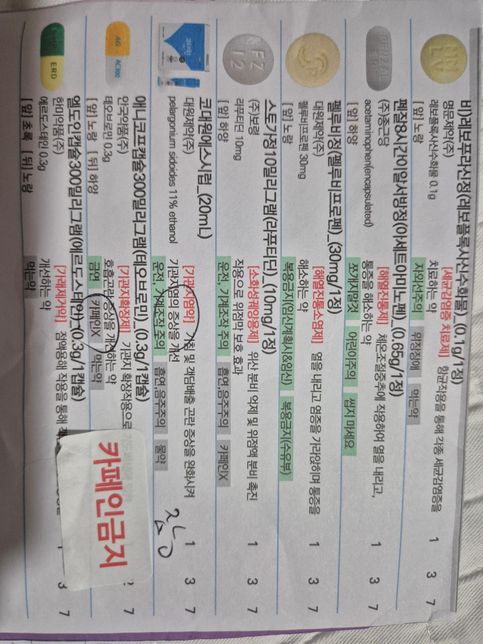 비카보푸라신정(레보플록사신수화물)_(0.1g/1정)
명문제약(주)
레보플록사신수화물 0.1g
[앞] 노랑
[세균감염증 치료제] 항균작용을 통해 각종 세균감염증을
치료하는 약
자외선주의 위장장애 먹는약
1 3 7
펜잘8시간이알서방정(아세트아미노펜)_(0.65g/1정)
(주)종근당
acetaminophen(encapsulated)
[앞] 하양
[해열진통제] 체온조절중추에 작용하여 열을 내리고,
통증을 해소하는 약
쪼개지말것 어린이주의 씹지 마세요
1 3 7
펠루비정(펠루비프로펜)_(30mg/1정)
대원제약(주)
펠루비프로펜 30mg
[앞] 노랑
[해열진통소염제] 열을 내리고 염증을 가라앉히며 통증을
해소하는 약
복용금지(임신계획시&임신) 복용금지(수유부)
1 3 7
스토가정10밀리그램(라푸티딘)_(10mg/1정)
(주)보령
라푸티딘 10mg
[앞] 하양
FZ
12
[소화성궤양용제] 위산 분비 억제 및 위점액 분비 촉진
작용으로 위점막 보호 효과
운전, 기계조작 주의 흡연,음주주의 카페인X
1 3 7
코대원에스시럽_(20mL)
대원제약(주)
pelargonium sidoides 11% ethanol
[기관지염약] 및 객담배출 곤란 증상을 완화시켜
기관지염의 증상을 개선
운전, 기계조작 주의 흡연,음주주의 물약
1 3 7
애니코프캡슐300밀리그램(테오브로민)_(0.3g/1캡슐)
안국약품(주)
테오브로민 0.3g
[앞] 노랑 [뒤] 하양
AG
AC300
[기관지확장제] 기관지 확장작용으로
호흡곤란 증상을 개선하는 약
금연 카페인X 먹는약
3 7
엘도인캡슐300밀리그램(에르도스테인)_(0.3g/1캡슐)
한미약품(주)
에르도스테인 0.3g
[앞] 초록 [뒤] 노랑
ERD
[기래제거약] 점액용해 작용을 통해
개선하는 약
먹는약
1 3 7
카페인금지